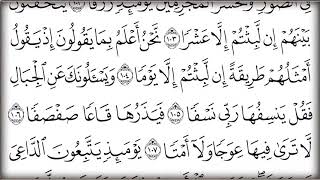 فِى ٱلصُّورِ وَنَحْشُرُ ٱلْمُجْرِمِينَ يَوْمَئِذٍ زُرْقًا ١٠٢ يَتَخَٰفَتُونَ
بَيْنَهُمْ إِن لَّبِثْتُمْ إِلَّا عَشْرًا ١٠٣ نَّحْنُ أَعْلَمُ بِمَا يَقُولُونَ إِذْ يَقُولُ
أَمْثَلُهُمْ طَرِيقَةً إِن لَّبِثْتُمْ إِلَّا يَوْمًا ١٠٤ وَيَسْـَٔلُونَكَ عَنِ ٱلْجِبَالِ
فَقُلْ يَنسِفُهَا رَبِّى نَسْفًا ١٠٥ فَيَذَرُهَا قَاعًا صَفْصَفًا ١٠٦
لَّا تَرَىٰ فِيهَا عِوَجًا وَلَآ أَمْتًا ١٠٧ يَوْمَئِذٍ يَتَّبِعُونَ ٱلدَّاعِىَ